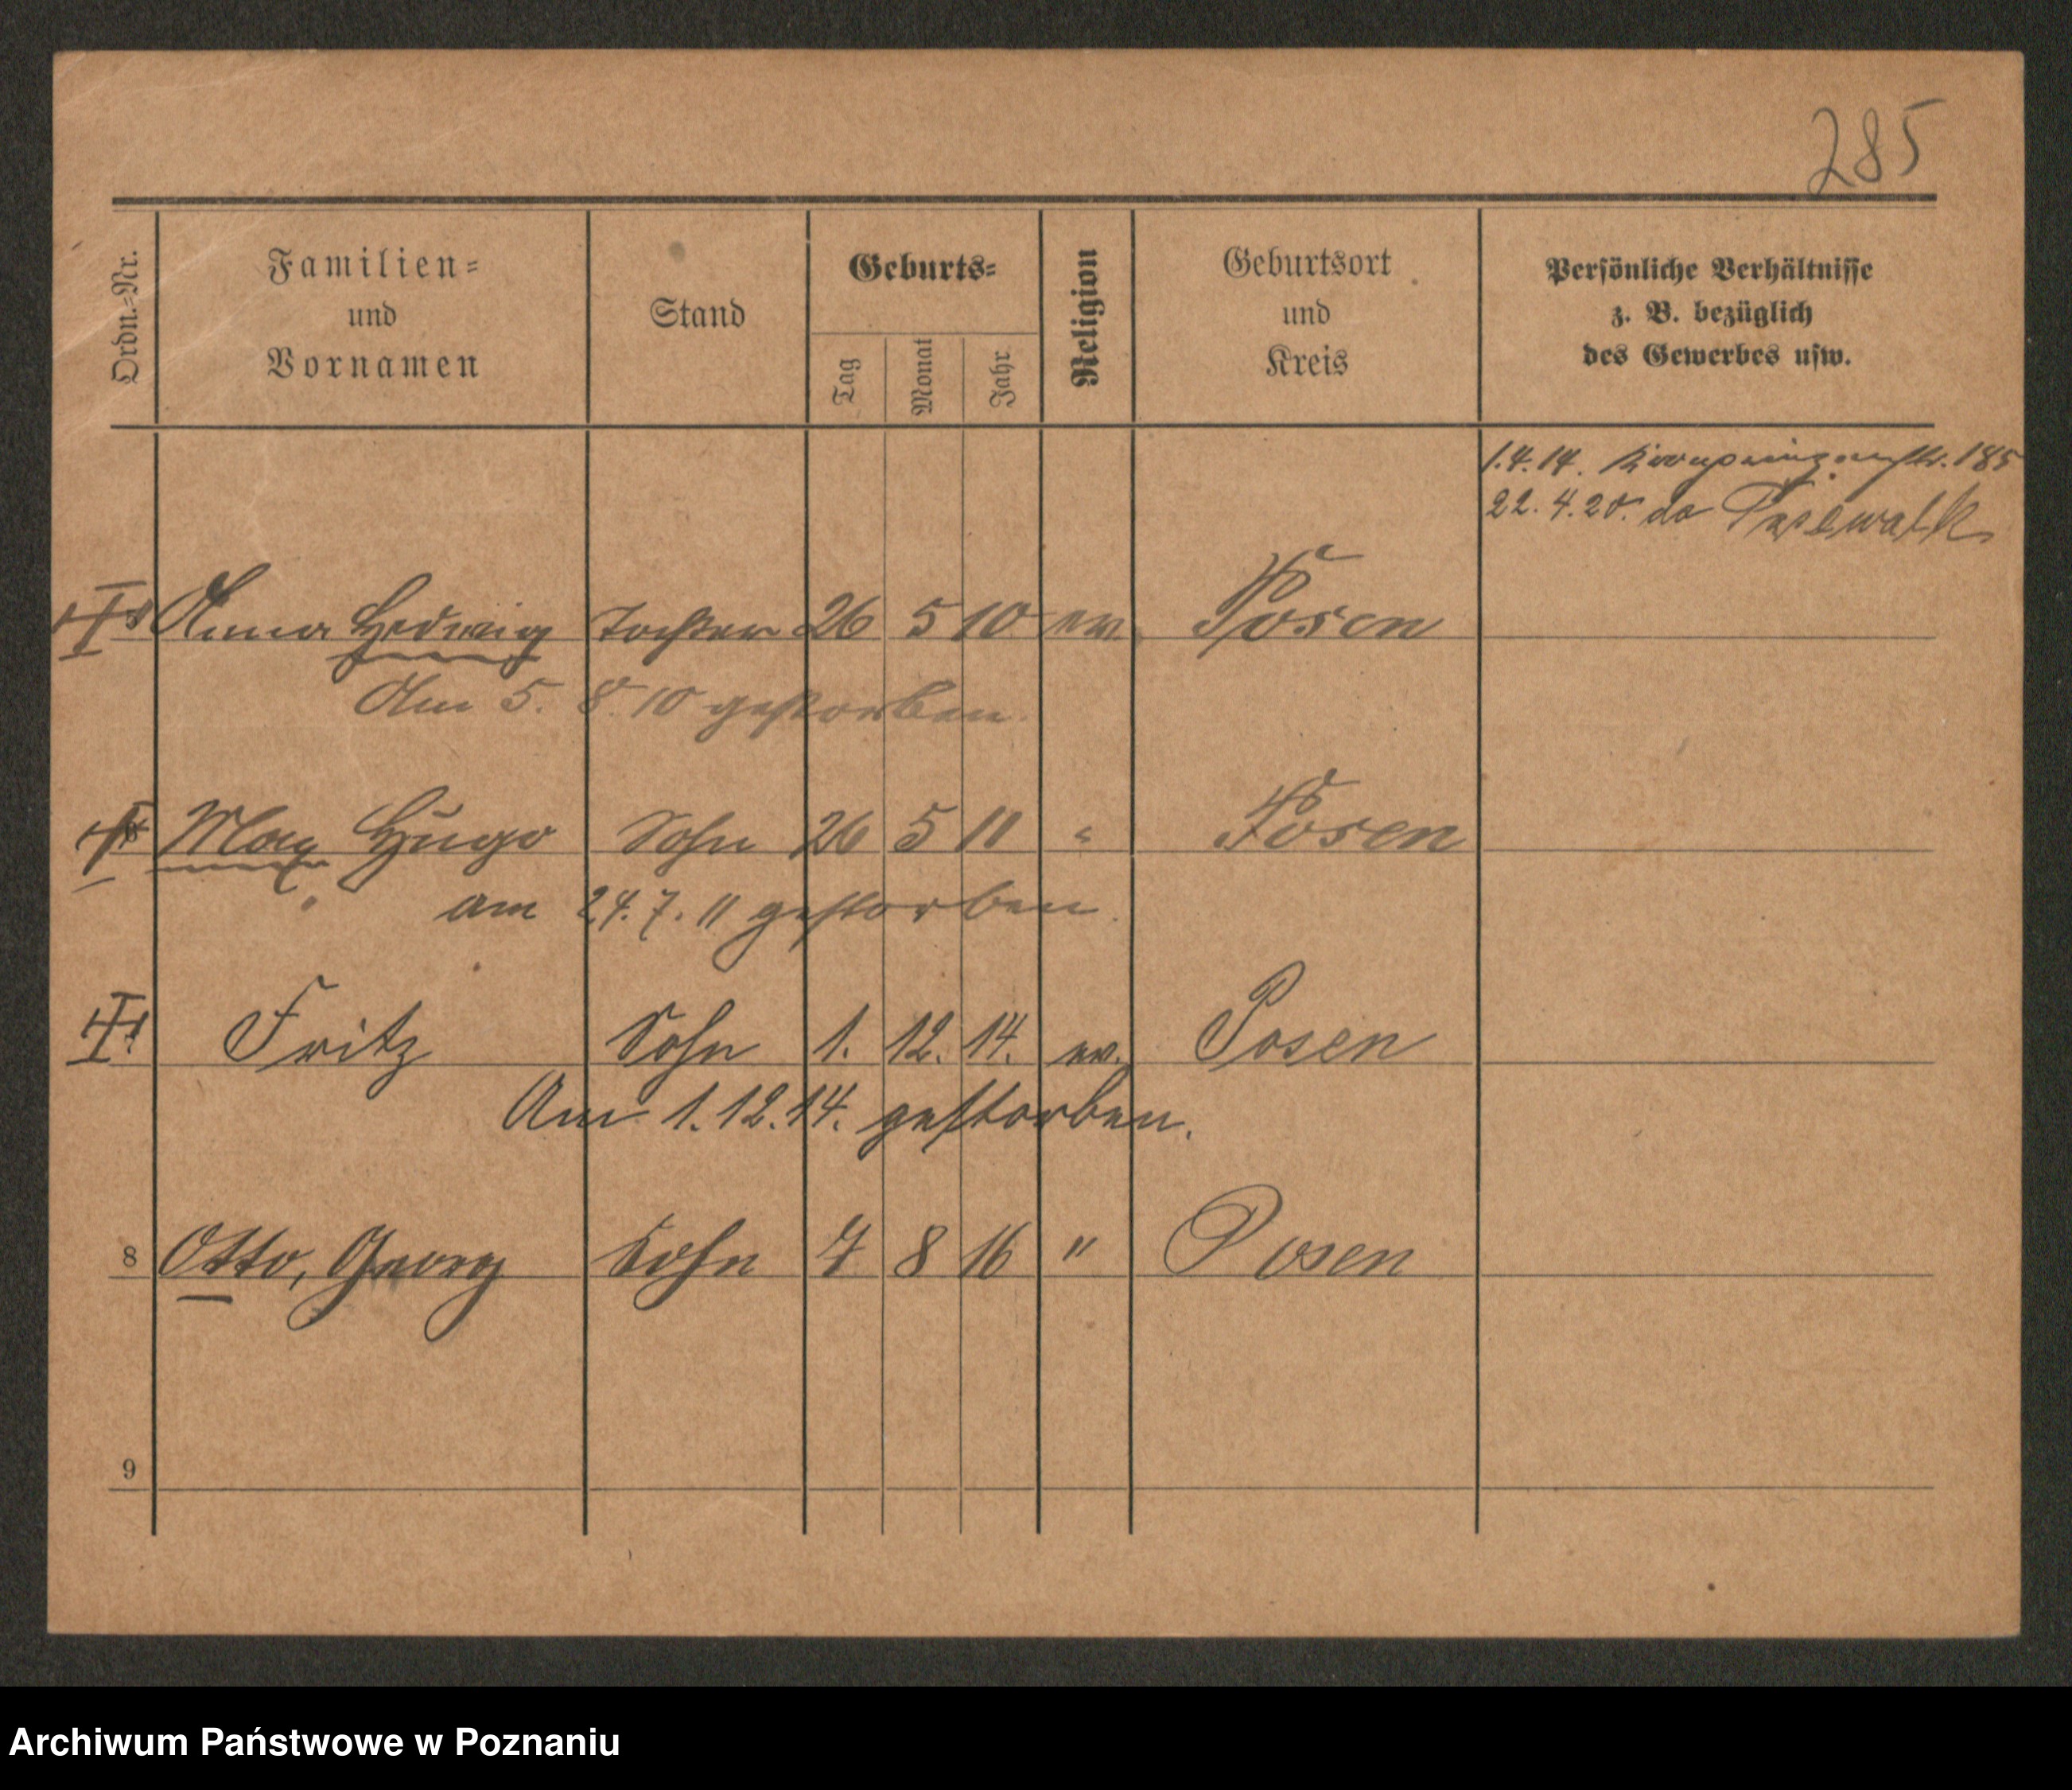 285
Ordn.=Nr.
Familien=
und
Vornamen
Stand
Geburts=
Tag
Monat
Jahr
Religion
Geburtsort
und
Kreis
Persönliche Verhältnisse
z. B. bezüglich
des Gewerbes usw.
1.4.14. Kronprinzenstr. 185
22.4.20. do Pasewalk
Anna Hedwig Tochter 26 5 10 ev. Posen
Am 5. 8. 10 gestorben
Max Hugo Sohn 26 5 11 " Posen
am 24.7.11 gestorben.
Fritz Sohn 1. 12. 14. ev. Posen
Am 1.12.14. gestorben.
8 Otto, Georg Sohn 7 8 16 " Posen
9
Archiwum Państwowe w Poznaniu